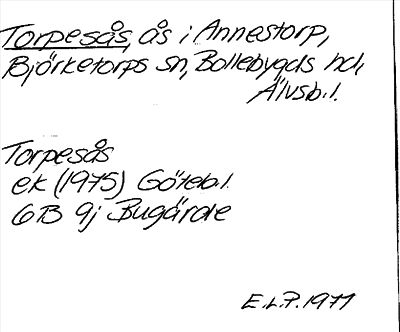 Torpesås, ås i Annestorp,
Björketorps sn, Bollebygds hd,
Älvsb. l.
Torpesås
ek (1975) Göteb. l.
6B 9j Bugärde
E.L.P. 1977